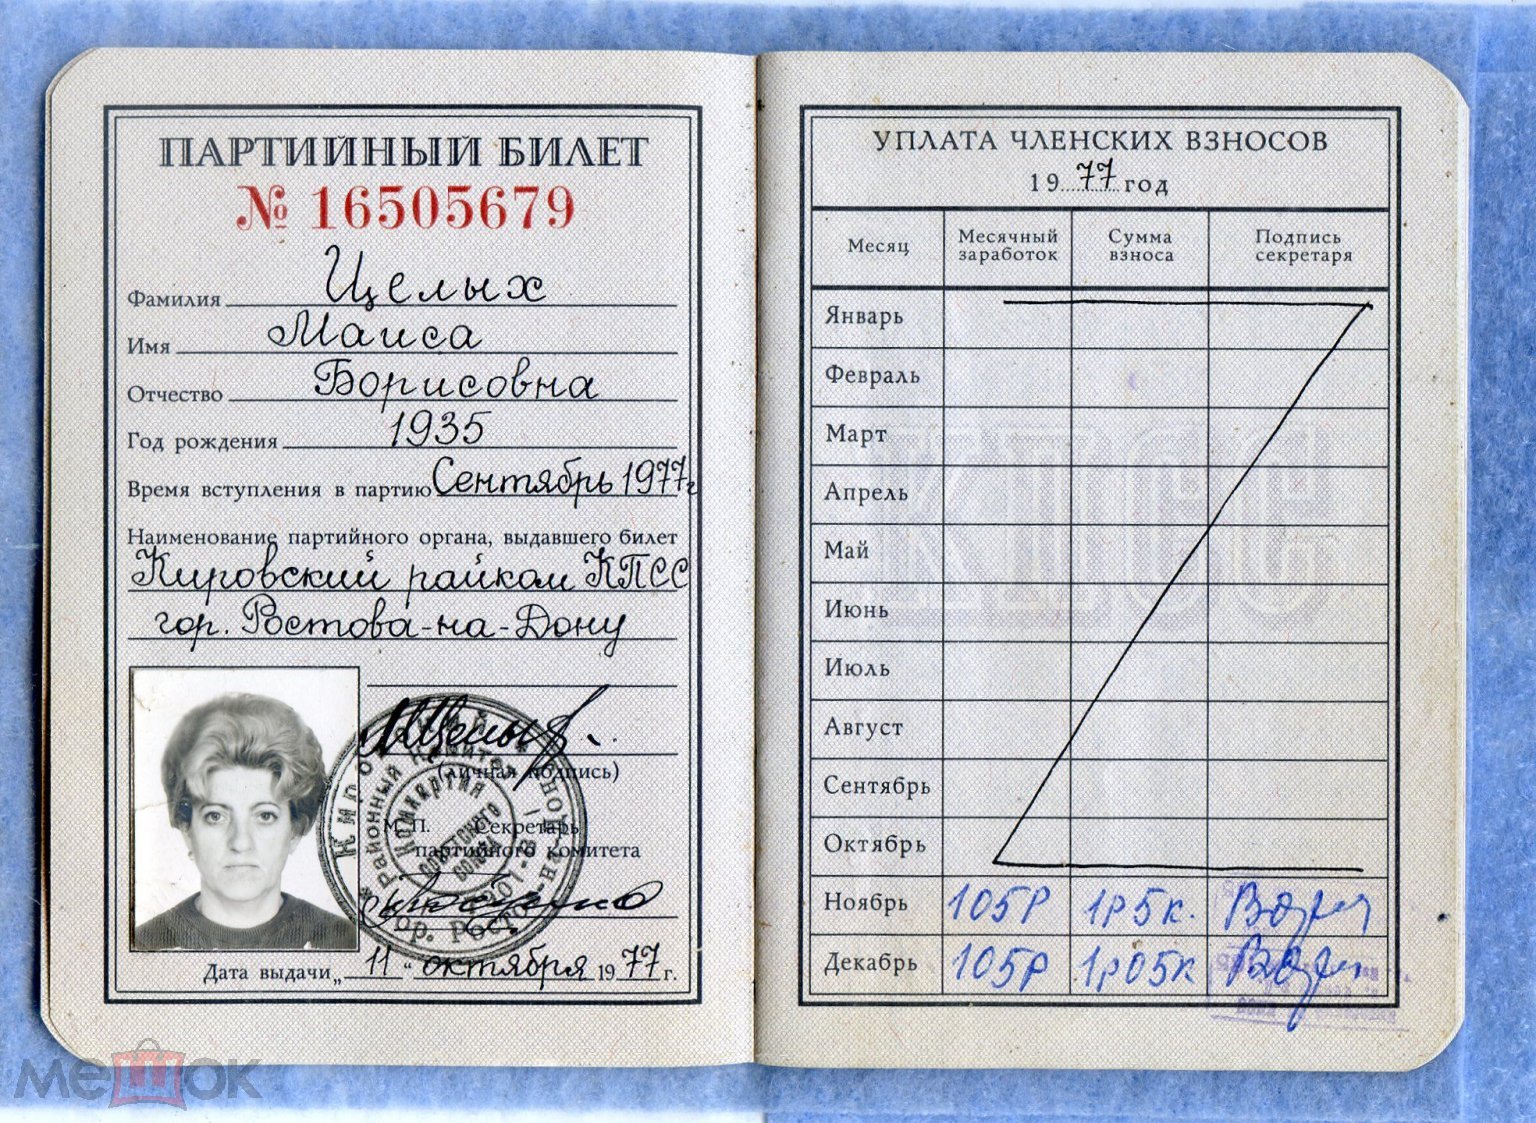 ПАРТИЙНЫЙ БИЛЕТ
№ 16505679
Фамилия Целых
Имя Маиса
Отчество Борисовна
Год рождения 1935
Время вступления в партию Сентябрь 1977г
Наименование партийного органа, выдавшего билет
Кировский райком КПСС
гор. Ростова-на-Дону
(личная подпись)
М.П. Секретарь
партийного комитета
Дата выдачи „11“ октября 1977 г.
УПЛАТА ЧЛЕНСКИХ ВЗНОСОВ
1977 год
Месяц Месячный заработок Сумма взноса Подпись секретаря
Январь
Февраль
Март
Апрель
Май
Июнь
Июль
Август
Сентябрь
Октябрь
Ноябрь 105р 1р5к.
Декабрь 105р 1р05к
мешок